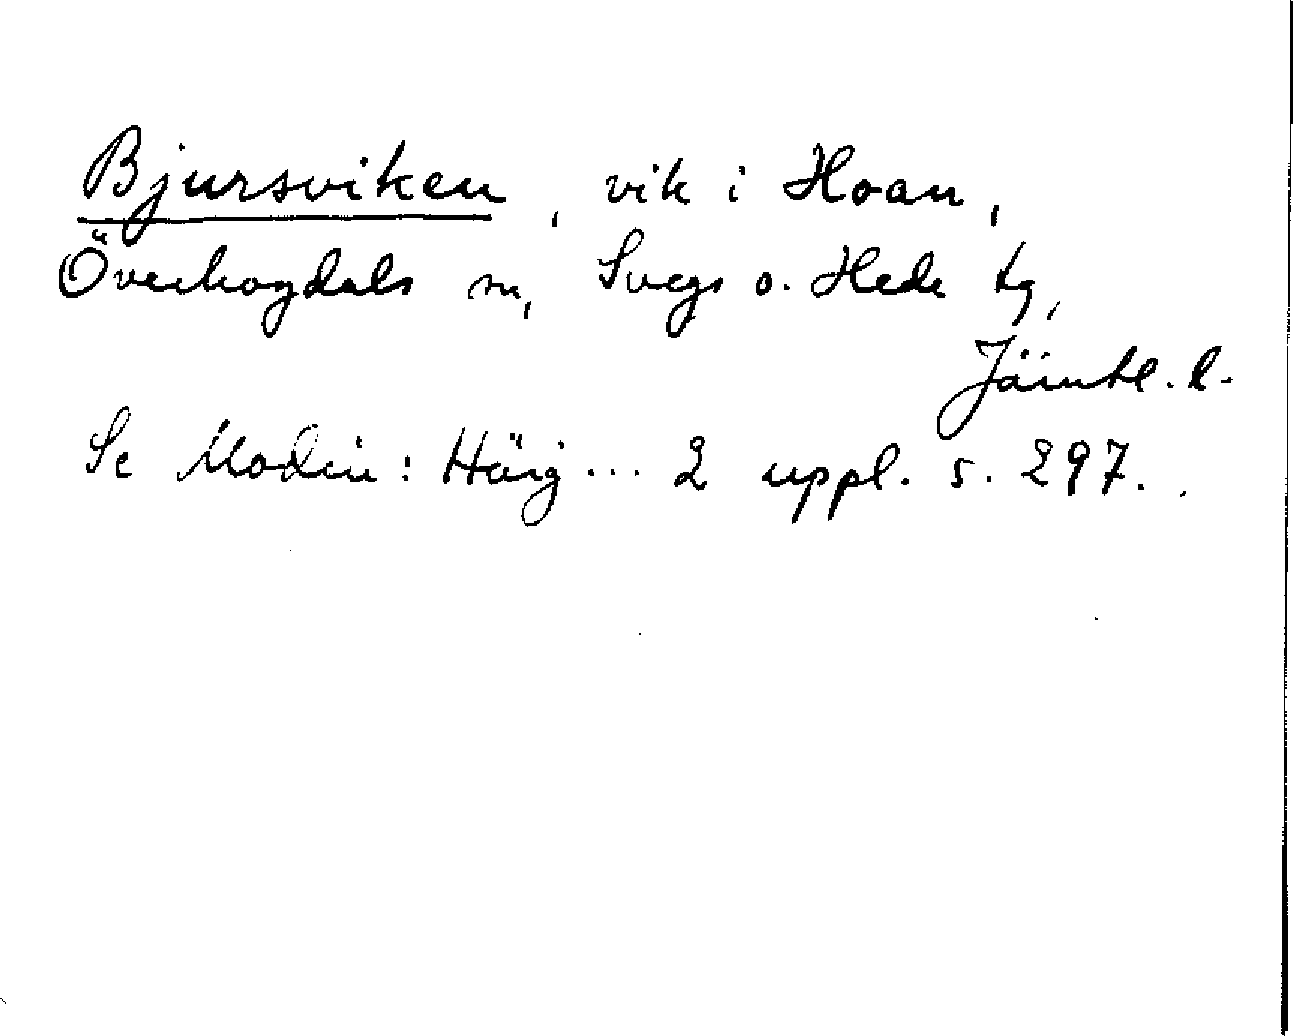 Bjursviken, vik i Hoan,
Överhogdals sn, Svegs o. Hede tg,
Jämtl. l.
Se Modin: Härj... 2 uppl. s. 297.